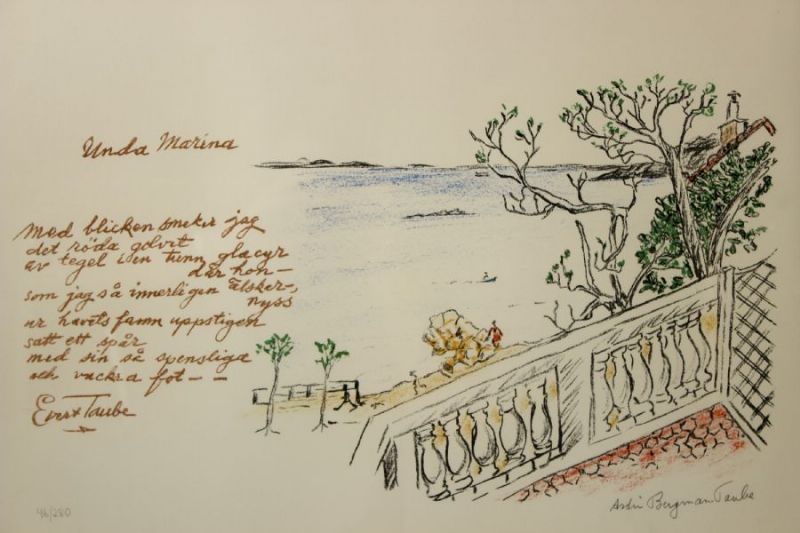 Unda Marina
Med blicken smeker jag
det röda golvet
av tegel i en tunn glacyr
där hon —
som jag så innerligen älsker,
nyss
ur havets famn uppstigen
satt ett spår
med sin så spensliga
och vackra fot — —
Evert Taube
46/280
Astri Bergman Taube